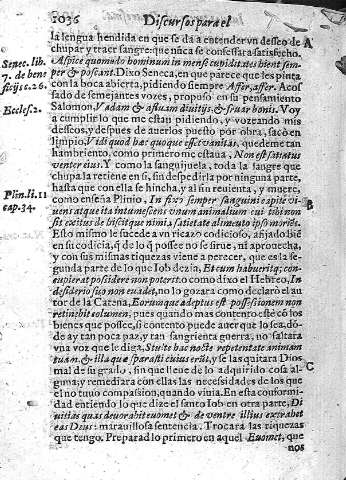 1036 Discursos para el
la lengua hendida en que se da a entender vn desseo de A
chupar y traer sangre: que nũca se confessara satisfecho.
Aspice quomodo hominum in mense cupiditates hient sem-
per & poscant. Dixo Seneca, en que parece que les pinta
con la boca abierta, pidiendo siempre Affer, affer. Acos
sado de semejantes vozes, propuso en su pensamiento
Salomon, Vadam & affluam diuitijs, & fruar bonis. Voy
a cumplir lo que me estan pidiendo, y vozeando mis
desseos, y despues de auerlos puesto por obra, sacò en
limpio, Vidi quod hæc quoque esset vanitas, quedeme tan
hambriento, como primero me estaua, Non est satiatus
venter eius. Y como la sanguijuela, toda la sangre que
chupa la retiene en si, sin despedirla por ninguna parte,
hasta que con ella se hincha, y al fin reuienta, y muere,
como enseña Plinio, Infixo semper sanguini capite vi-
uens atque ita intumescens vnum animalium cui cibi non
sit exitus dehiscitque nimia satietate alimento ipso moriẽs.
Esto mismo le sucede a vn ricazo codicioso, añajado biẽ
en su codicia, q̃ de lo q̃ possee no se sirue, ni aprouecha,
y con sus mismas riquezas viene a perecer, que es la se-
gunda parte de lo que Iob dezia, Et cum habuerit q; con-
cupierat possidere non poterit: o como dixo el Hebreo, In
desiderio suo non euadet, no lo gozara como declarò el au
tor de la Catena, Eorumque adeptus est possessionem non
retinebit solumen, pues quando mas contento estè cõ los
bienes que possee, si contento puede auer que lo sea, dõ-
de ay tan poca paz, y tan sangrienta guerra, no faltara
vna voz que le diga, Stulte hac nocte repentent animam
tuam, & illa quæ parasti cuius erũt, y se las quitara Dios
mal de su grado, sin que lleue de lo adquirido cosa al-
guna, y remediara con ellas las necessidades de los que
el no tuuo compassion, quando viuia. En esta conformi-
dad entiendo lo que dize el santo Iob en otra parte, Di
uitias quas deuorabit euomet & de ventre illius extrahet
eas Deus: marauillosa sentencia. Trocara las riquezas
que tengo. Preparad lo primero en aquel Euomet, que
nos
Senec. lib.
7. de bene
ficijs c. 26.
Eccles. 2.
Plin. li. 11
cap. 34.
B
C